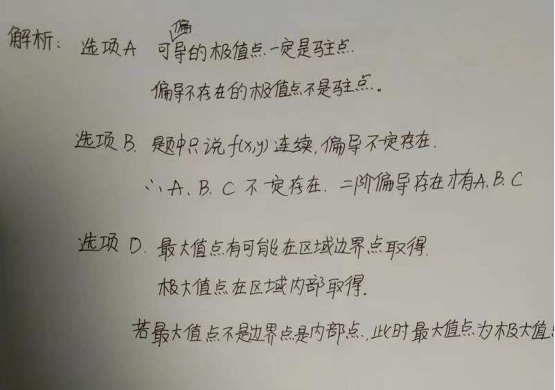 解析: 选项A 可偏导的极值点一定是驻点.
偏导不存在的极值点不是驻点。
选项B. 题中只说f(x,y)连续,偏导不一定存在.
∴A、B、C不一定存在. 二阶偏导存在才有A、B、C
选项D. 最大值点有可能在区域边界点取得.
极大值点在区域内部取得.
若最大值点不是边界点是内部点,此时最大值点为极大值